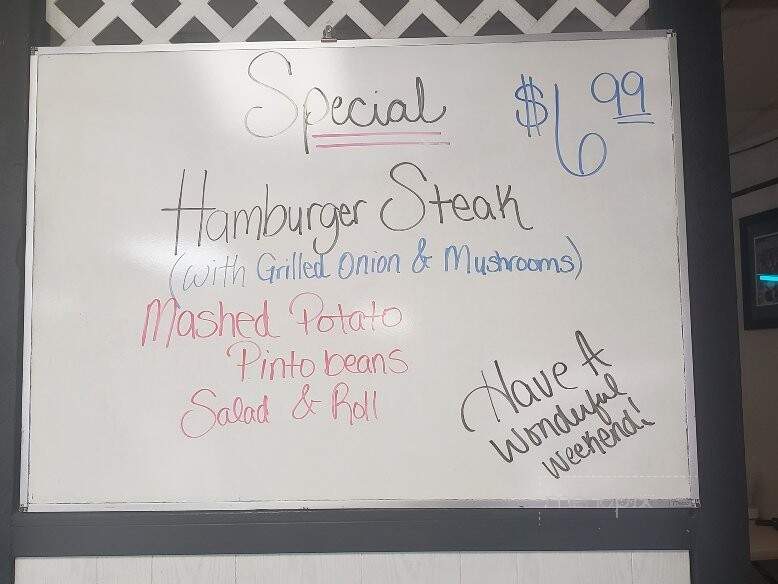 Special
$6.99
Hamburger Steak
(with Grilled Onion & Mushrooms)
Mashed Potato
Pinto beans
Salad & Roll
Have A
Wonderful
Weekend!